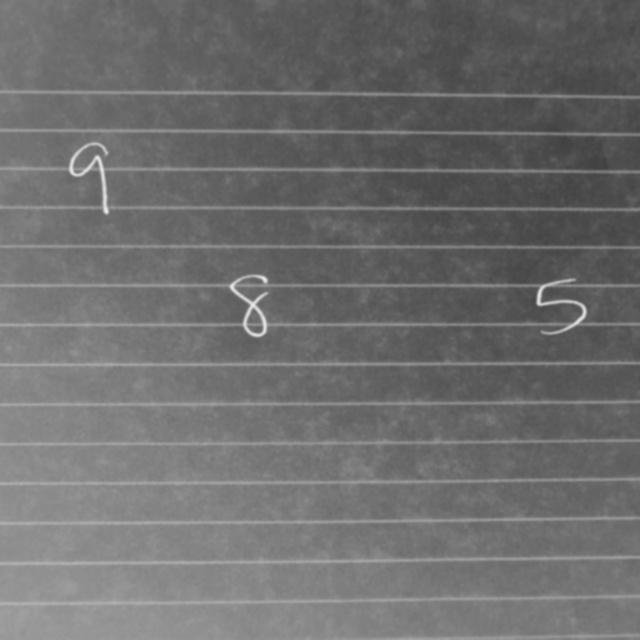 9
8 5